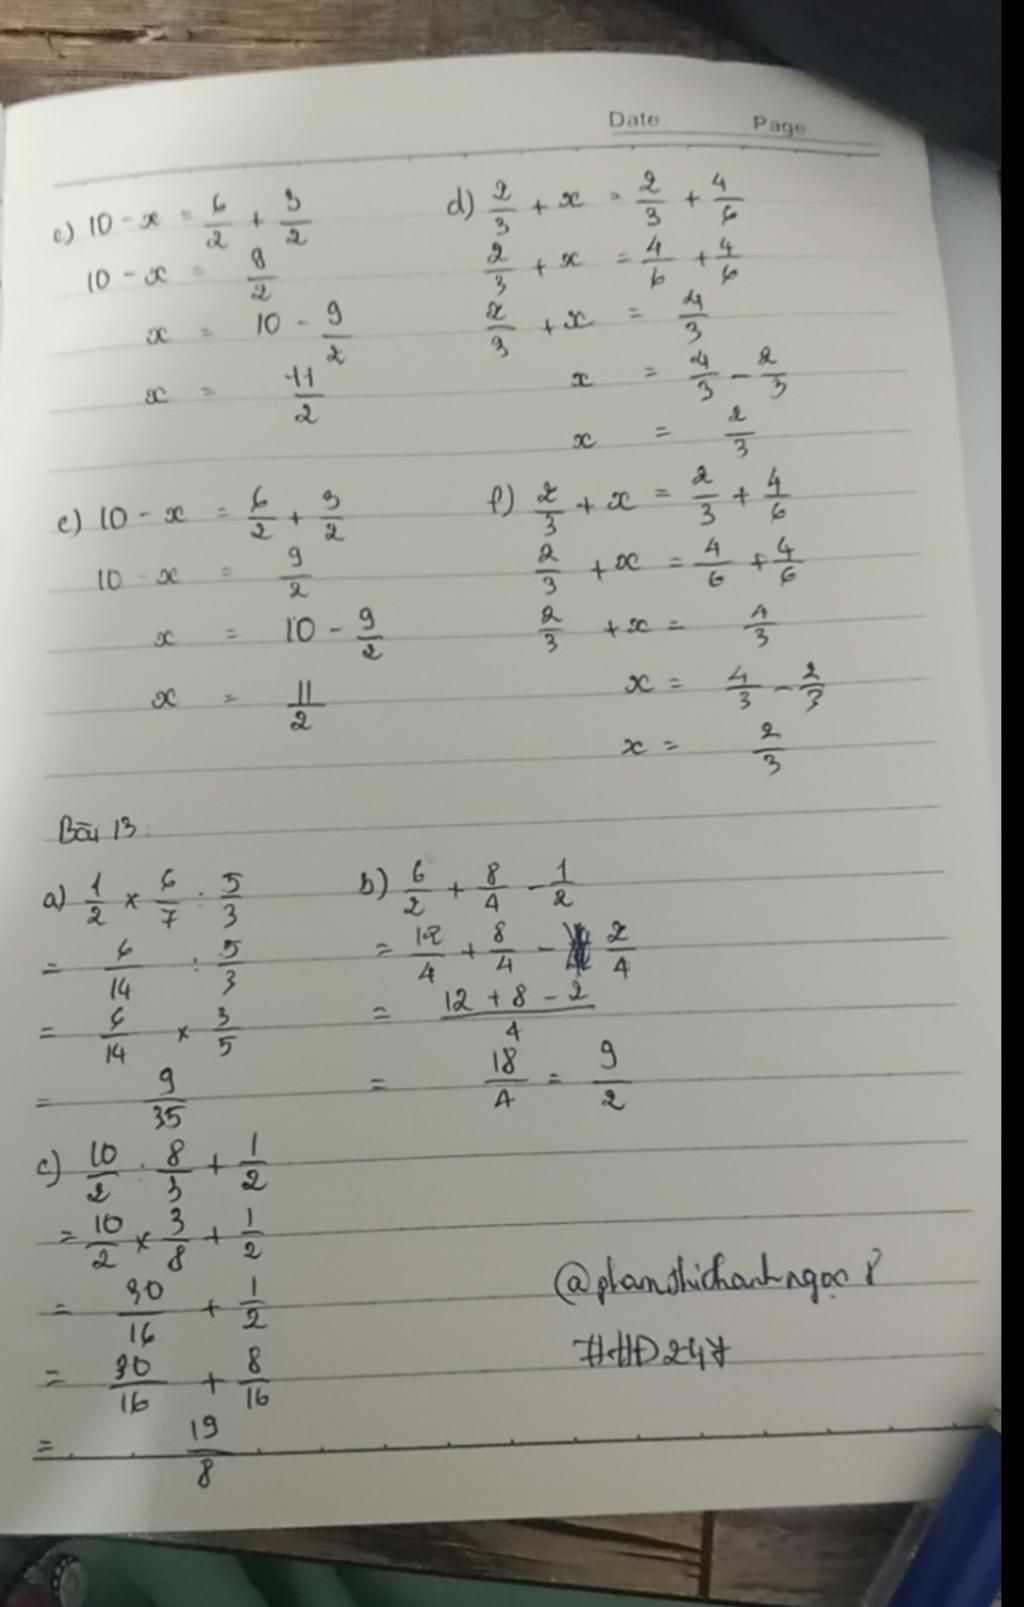 Date Page
c) 10 - x = 6/2 + 3/2
10 - x = 9/2
x = 10 - 9/2
x = 11/2
d) 2/3 + x = 2/3 + 4/6
2/3 + x = 4/6 + 4/6
2/3 + x = 4/3
x = 4/3 - 2/3
x = 2/3
e) 10 - x = 6/2 + 3/2
10 - x = 9/2
x = 10 - 9/2
x = 11/2
f) 2/3 + x = 2/3 + 4/6
2/3 + x = 4/6 + 4/6
2/3 + x = 4/3
x = 4/3 - 2/3
x = 2/3
Bài 13:
a) 1/2 × 6/7 : 5/3
= 6/14 : 5/3
= 6/14 × 3/5
= 9/35
b) 6/2 + 8/4 - 1/2
= 12/4 + 8/4 - 2/4
= (12 + 8 - 2)/4
= 18/4 = 9/2
c) 10/2 : 8/3 + 1/2
= 10/2 × 3/8 + 1/2
= 30/16 + 1/2
= 30/16 + 8/16
= 19/8
@phamthichanhngoc8
#HĐ247